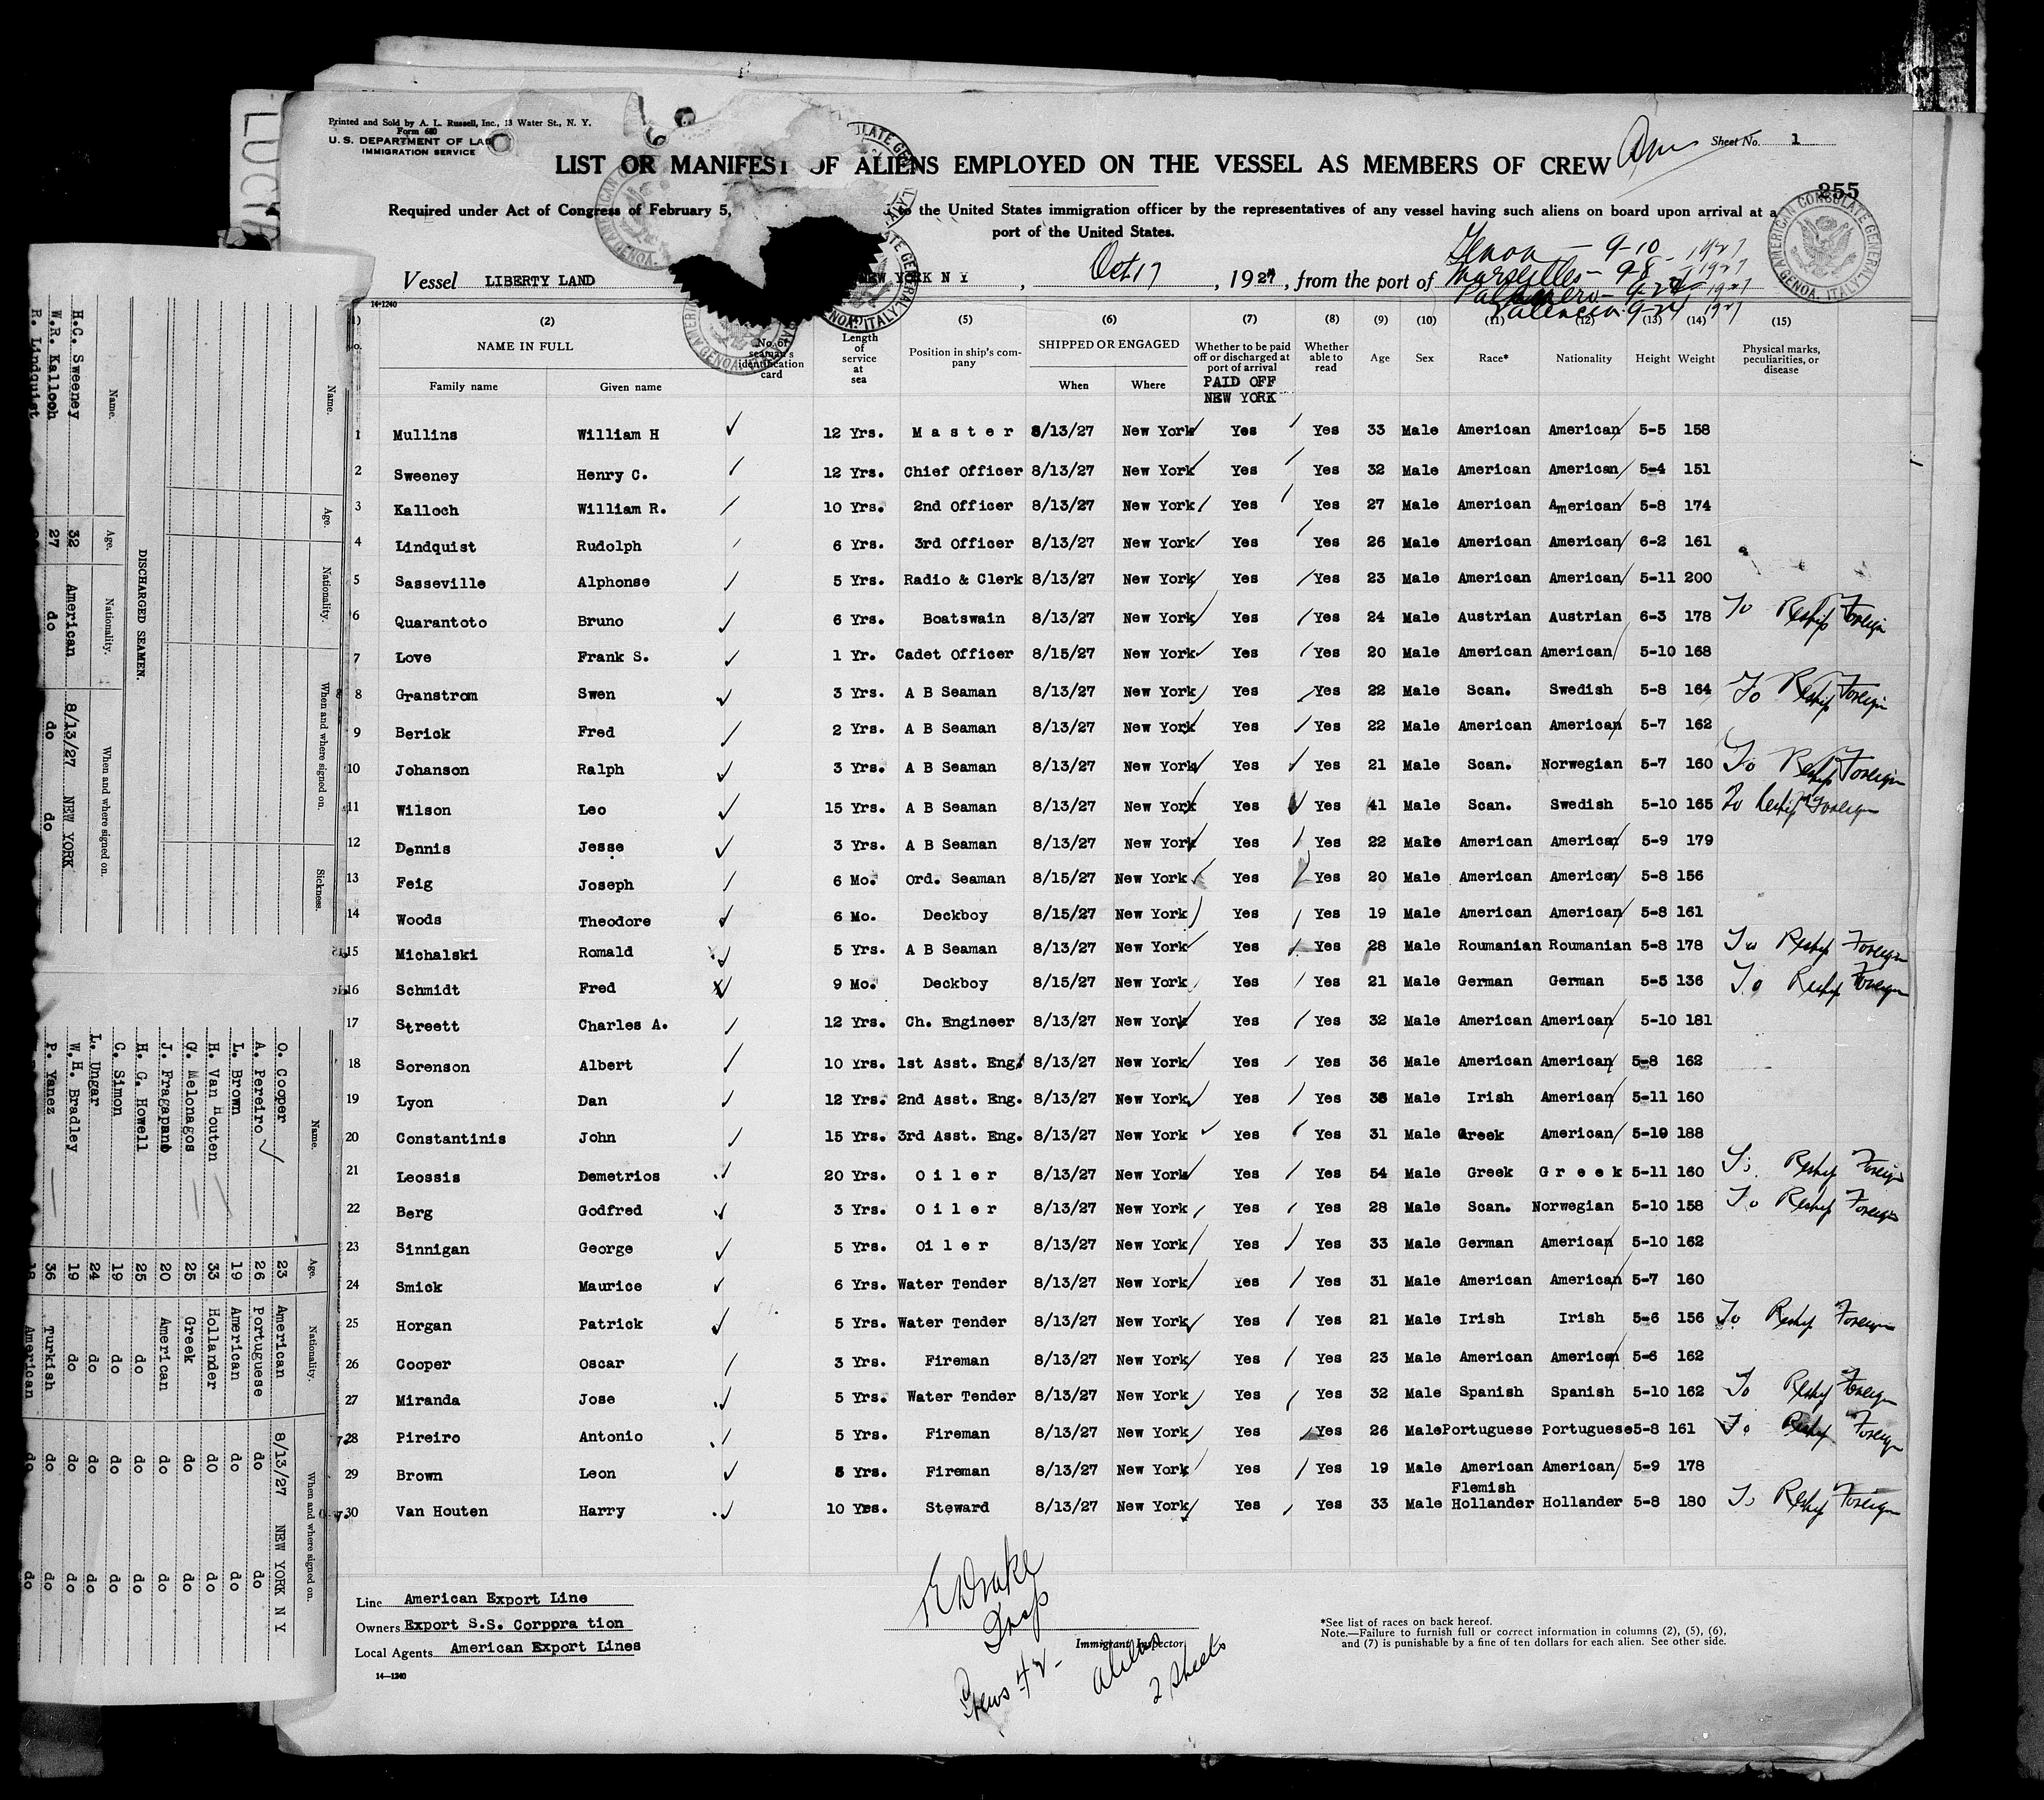 LUCHE
Printed and Sold by A. L. Russell, Inc., 13 Water St., N. Y.
Form 680
U. S. DEPARTMENT OF LAB
IMMIGRATION SERVICE
Sheet No. 1
LIST OR MANIFEST OF ALIENS EMPLOYED ON THE VESSEL AS MEMBERS OF CREW
255
Required under Act of Congress of February 5, to the United States immigration officer by the representatives of any vessel having such aliens on board upon arrival at a
port of the United States.
AMERICAN CONSULATE GENERAL
GENOA, ITALY.
Genoa - 9-10-1927
Marseilles - 9-8-1927
Vessel LIBERTY LAND NEW YORK N Y, Oct 17, 1927, from the port of
Valencia 9-24 1927
14-1240
(1) (2) (5) (6) (7) (8) (9) (10) (11) (12) (13) (14) (15)
No. NAME IN FULL No. of seaman's identification card Length of service at sea Position in ship's company SHIPPED OR ENGAGED Whether to be paid off or discharged at port of arrival Whether able to read Age Sex Race* Nationality Height Weight Physical marks, peculiarities, or disease
Family name Given name When Where PAID OFF NEW YORK
1 Mullins William H 12 Yrs. Master 8/13/27 New York Yes Yes 33 Male American American 5-5 158
2 Sweeney Henry C. 12 Yrs. Chief Officer 8/13/27 New York Yes Yes 32 Male American American 5-4 151
3 Kalloch William R. 10 Yrs. 2nd Officer 8/13/27 New York Yes Yes 27 Male American American 5-8 174
4 Lindquist Rudolph 6 Yrs. 3rd Officer 8/13/27 New York Yes Yes 26 Male American American 6-2 161
5 Sasseville Alphonse 5 Yrs. Radio & Clerk 8/13/27 New York Yes Yes 23 Male American American 5-11 200
6 Quarantoto Bruno 6 Yrs. Boatswain 8/13/27 New York Yes Yes 24 Male Austrian Austrian 6-3 178 To Reship Foreign
7 Love Frank S. 1 Yr. Cadet Officer 8/15/27 New York Yes Yes 20 Male American American 5-10 168
8 Granstrom Swen 3 Yrs. A B Seaman 8/13/27 New York Yes Yes 22 Male Scan. Swedish 5-8 164 To Reship Foreign
9 Berick Fred 2 Yrs. A B Seaman 8/13/27 New York Yes Yes 22 Male American American 5-7 162
10 Johanson Ralph 3 Yrs. A B Seaman 8/13/27 New York Yes Yes 21 Male Scan. Norwegian 5-7 160 To Reship Foreign
11 Wilson Leo 15 Yrs. A B Seaman 8/13/27 New York Yes Yes 41 Male Scan. Swedish 5-10 165 To Reship Foreign
12 Dennis Jesse 3 Yrs. A B Seaman 8/13/27 New York Yes Yes 22 Male American American 5-9 179
13 Feig Joseph 6 Mo. Ord. Seaman 8/15/27 New York Yes Yes 20 Male American American 5-8 156
14 Woods Theodore 6 Mo. Deckboy 8/15/27 New York Yes Yes 19 Male American American 5-8 161
15 Michalski Romald 5 Yrs. A B Seaman 8/13/27 New York Yes Yes 28 Male Roumanian Roumanian 5-8 178 To Reship Foreign
16 Schmidt Fred 9 Mo. Deckboy 8/15/27 New York Yes Yes 21 Male German German 5-5 136 To Reship Foreign
17 Streett Charles A. 12 Yrs. Ch. Engineer 8/13/27 New York Yes Yes 32 Male American American 5-10 181
18 Sorenson Albert 10 Yrs. 1st Asst. Eng. 8/13/27 New York Yes Yes 36 Male American American 5-8 162
19 Lyon Dan 12 Yrs. 2nd Asst. Eng. 8/13/27 New York Yes Yes 38 Male Irish American 5-11 160
20 Constantinis John 15 Yrs. 3rd Asst. Eng. 8/13/27 New York Yes Yes 31 Male Greek American 5-10 188
21 Leossis Demetrios 20 Yrs. Oiler 8/13/27 New York Yes Yes 54 Male Greek Greek 5-11 160 To Reship Foreign
22 Berg Godfred 3 Yrs. Oiler 8/13/27 New York Yes Yes 28 Male Scan. Norwegian 5-10 158 To Reship Foreign
23 Sinnigan George 5 Yrs. Oiler 8/13/27 New York Yes Yes 33 Male German American 5-10 162
24 Smick Maurice 6 Yrs. Water Tender 8/13/27 New York Yes Yes 31 Male American American 5-7 160
25 Horgan Patrick 5 Yrs. Water Tender 8/13/27 New York Yes Yes 21 Male Irish Irish 5-6 156 To Reship Foreign
26 Cooper Oscar 3 Yrs. Fireman 8/13/27 New York Yes Yes 23 Male American American 5-6 162
27 Miranda Jose 5 Yrs. Water Tender 8/13/27 New York Yes Yes 32 Male Spanish Spanish 5-10 162 To Reship Foreign
28 Pireiro Antonio 5 Yrs. Fireman 8/13/27 New York Yes Yes 26 Male Portuguese Portuguese 5-8 161 To Reship Foreign
29 Brown Leon 5 Yrs. Fireman 8/13/27 New York Yes Yes 19 Male American American 5-9 178
30 Van Houten Harry 10 Yrs. Steward 8/13/27 New York Yes Yes 33 Male Flemish Hollander Hollander 5-8 180 To Reship Foreign
Line American Export Line
Owners Export S.S. Corppra tion
Local Agents American Export Lines
14-1240
E Drake
Insp
Immigrant Inspector
Crews 42 - Aliens
2 sheets
*See list of races on back hereof.
Note.—Failure to furnish full or correct information in columns (2), (5), (6),
and (7) is punishable by a fine of ten dollars for each alien. See other side.
Name. Age. Nationality. When and where signed on. Sickness.
DISCHARGED SEAMEN.
Name. Age. Nationality. When and where signed on.
H.C. Sweeney 32 American 8/13/27 NEW YORK
W.R. Kalloch 27 do do do
R. Lindquist
Name. Age. Nationality. When and where signed on.
O. Cooper 23 American 8/13/27 NEW YORK N Y
A. Pereiro 26 Portuguese do do
L. Brown 19 American do do
H. Van Houten 33 Hollander do do
G. Melonagos 25 Greek do do
J. Fragapant 20 American do do
H. G. Howell 25 do do do
C. Simon 19 do do do
L. Ungar 24 do do do
W.H. Bradley 19 do do do
P. Yanez 36 Turkish do do
18 American do do